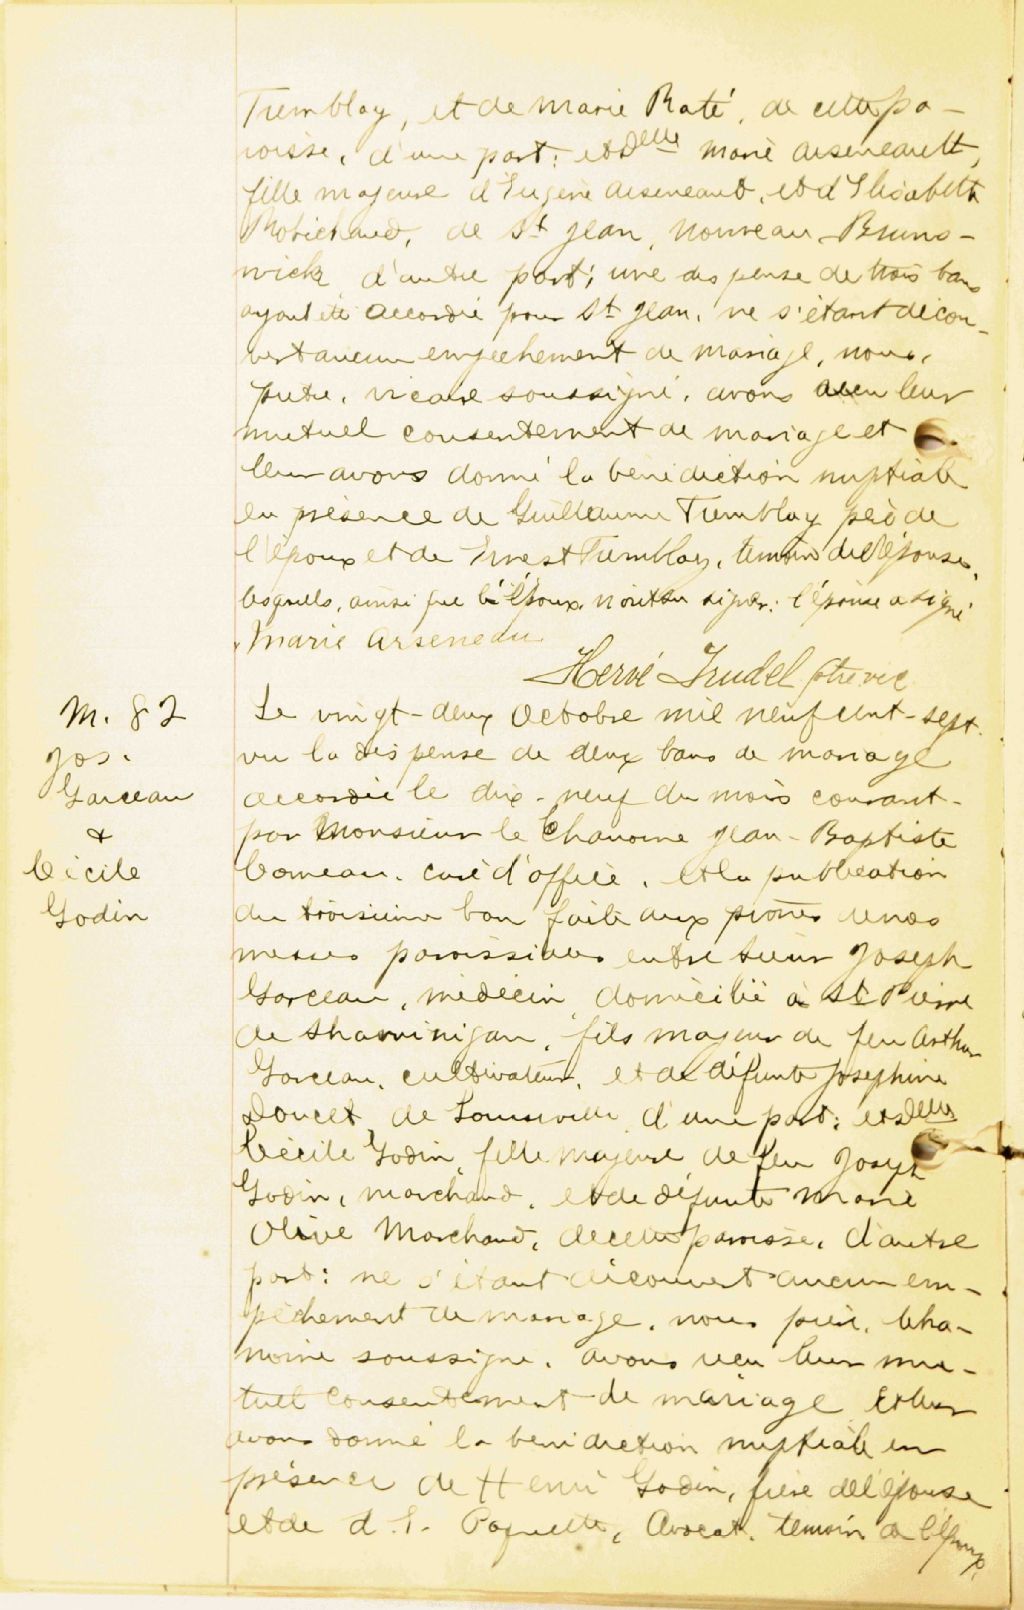 Tremblay, et de Marie Raté, de cette pa-
roisse, d'une part; et Delle Marie Arseneault,
fille majeure d'Eugène Arseneault, et d'Elisabeth
Robichaud, de St Jean, Nouveau-Bruns-
wick d'autre part; une dispense de trois bans
ayant été accordée pour St Jean, ne s'étant décou-
vert aucun empêchement de mariage, nous,
prêtre, vicaire soussigné, avons reçu leur
mutuel consentement de mariage et
leur avons donné la bénédiction nuptiale
en présence de Guillaume Tremblay père de
l'époux et de Ernest Tremblay, témoin de l'épouse,
lesquels, ainsi que l'époux n'ont su signer; l'épouse a signé
Marie Arseneau
Hervé Trudel ptre vic
M. 82
Jos.
Garceau
&
Cécile
Godin
Le vingt-deux Octobre mil neuf cent-sept
vu la dispense de deux bans de mariage
accordée le dix-neuf du mois courant
par Monsieur le Chanoine Jean-Baptiste
Comeau, curé d'office, et la publication
du troisième ban faite aux prônes de nos
messes paroissiales entre Sieur Joseph
Garceau, médecin, domicilié à St Pierre
de Shawinigan, fils majeur de feu Arthur
Garceau, cultivateur, et de défunte Joséphine
Doucet, de Louiseville d'une part; et Delle
Cécile Godin, fille majeure de feu Joseph
Godin, marchand, et de défunte Marie
Olive Marchand, de cette paroisse, d'autre
part: ne s'étant découvert aucun em-
pêchement de mariage, nous prêtre, Cha-
noine soussigné, avons reçu leur mu-
tuel consentement de mariage et leur
avons donné la bénédiction nuptiale en
présence de Henri Godin, frère de l'épouse
et de Paquette, Avocat, témoin de l'époux,